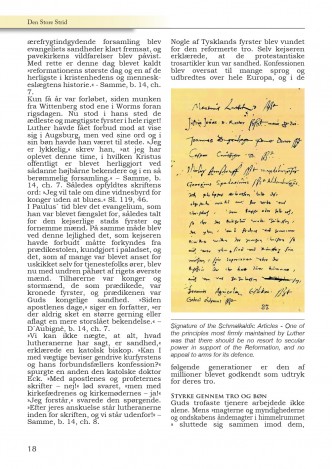 Den Store Strid
ærefrygtindgydende forsamling blev
evangeliets sandheder klart fremsat, og
pavekirkens vildfarelser blev påvist.
Med rette er denne dag blevet kaldt
»reformationens største dag og en af de
herligste i kristenhedens og menneske-
slægtens historie.« - Samme, b. 14, ch.
7.
Kun få år var forløbet, siden munken
fra Wittenberg stod ene i Worms foran
rigsdagen. Nu stod i hans sted de
ædleste og mægtigste fyrster i hele riget!
Luther havde fået forbud mod at vise
sig i Augsburg, men ved sine ord og i
sin bøn havde han været til stede. »Jeg
er lykkelig,« skrev han, »at jeg har
oplevet denne time, i hvilken Kristus
offentligt er blevet herliggjort ved
sådanne højbårne bekendere og i en så
berømmelig forsamling.« – Samme, b.
14, ch. 7. Således opfyldtes skriftens
ord: »Jeg vil tale om dine vidnesbyrd for
konger uden at blues.« SL 119, 46.
I Paulus' tid blev det evangelium, som
han var blevet fængslet for, således talt
for den kejserlige stads fyrster og
fornemme mænd. På samme måde blev
ved denne lejlighed det, som kejseren
havde forbudt måtte forkyndes fra
prædikestolen, kundgjort i paladset, og
det, som af mange var blevet anset for
uskikket selv for tjenestefolks ører, blev
nu med undren påhørt af rigets øverste
mænd. Tilhørerne var konger og
stormænd, de som prædikede, var
kronede fyrster, og prædikenen var
Guds kongelige sandhed. »Siden
apostlenes dage,« siger en forfatter, »er
der aldrig sket en større gerning eller
aflagt en mere storslået bekendelse.« –
D'Aubigné, b. 14, ch. 7.
»Vi kan ikke nægte, at alt, hvad
lutheranerne har sagt, er sandhed,«
erklærede en katolsk biskop. »Kan I
med vægtige beviser gendrive kurfyrstens
og hans forbundsfællers konfession?«
spurgte en anden den katolske doktor
Eck. »Med apostlenes og profeternes
skrifter – nej!« lød svaret, »men med
kirkefædrenes og kirkemødernes – ja!«
»Jeg forstår,« svarede den spørgende.
»Efter jeres anskuelse står lutheranerne
inden for skriften, og vi står udenfor!« –
Samme, b. 14, ch. 8.
Nogle af Tysklands fyrster blev vundet
for den reformerte tro. Selv kejseren
erklærede, at de protestantiske
trosartikler kun var sandhed. Konfessionen
blev oversat til mange sprog og
udbredtes over hele Europa, og i de
Signature of the Schmalkaldic Articles - One of
the principles most firmly maintained by Luther
was that there should be no resort to secular
power in support of the Reformation, and no
appeal to arms for its defence.
følgende generationer er den af
millioner blevet godkendt som udtryk
for deres tro.
STYRKE GENNEM TRO OG BØN
Guds trofaste tjenere arbejdede ikke
alene. Mens »magterne og myndighederne
og ondskabens åndemagter i himmelrummet
« sluttede sig sammen imod dem,
18